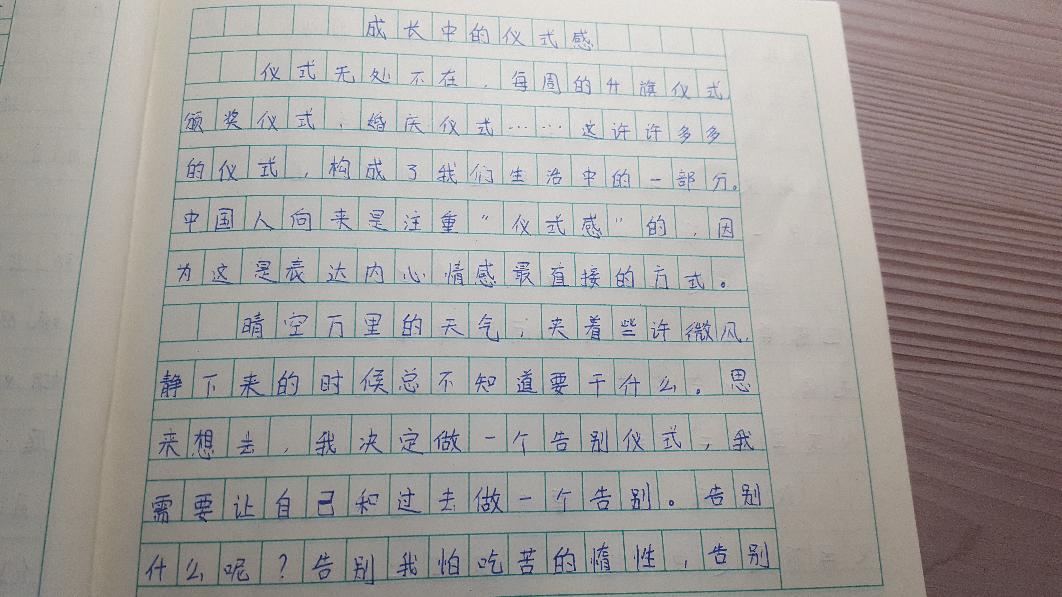 成长中的仪式感
仪式无处不在，每周的升旗仪式
颁奖仪式、婚庆仪式……这许许多多
的仪式，构成了我们生活中的一部分。
中国人向来是注重“仪式感”的，因
为这是表达内心情感最直接的方式。
晴空万里的天气，夹着些许微风，
静下来的时候总不知道要干什么。思
来想去，我决定做一个告别仪式，我
需要让自己和过去做一个告别。告别
什么呢？告别我怕吃苦的惰性，告别